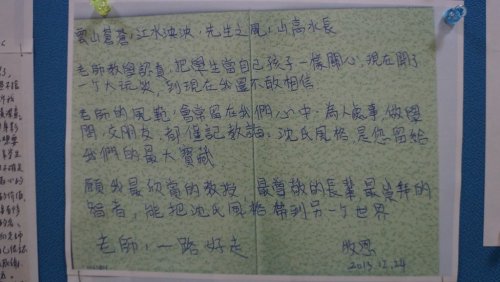 雲山蒼蒼，江水泱泱，先生之風，山高水長
老師教學認真，把學生當自己孩子一樣關心，現在開了
一个大玩笑，到現在我還不敢相信
老師的風範，會常留在我們心中，為人處事，做學
問，交朋友，都謹記教誨，沈氏風格是您留給
我們的最大寶藏
願我最欣賞的教授　最尊敬的長輩最崇拜的
智者，能把沈氏風格帶到另一个世界
老師，一路好走
2013.12.24